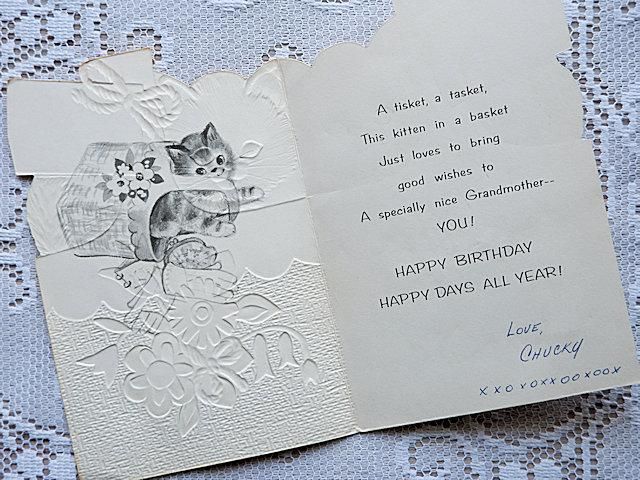 A tisket, a tasket,
This kitten in a basket
Just loves to bring
good wishes to
A specially nice Grandmother--
YOU!
HAPPY BIRTHDAY
HAPPY DAYS ALL YEAR!
LOVE,
CHUCKY
xxoxoxxooxoox